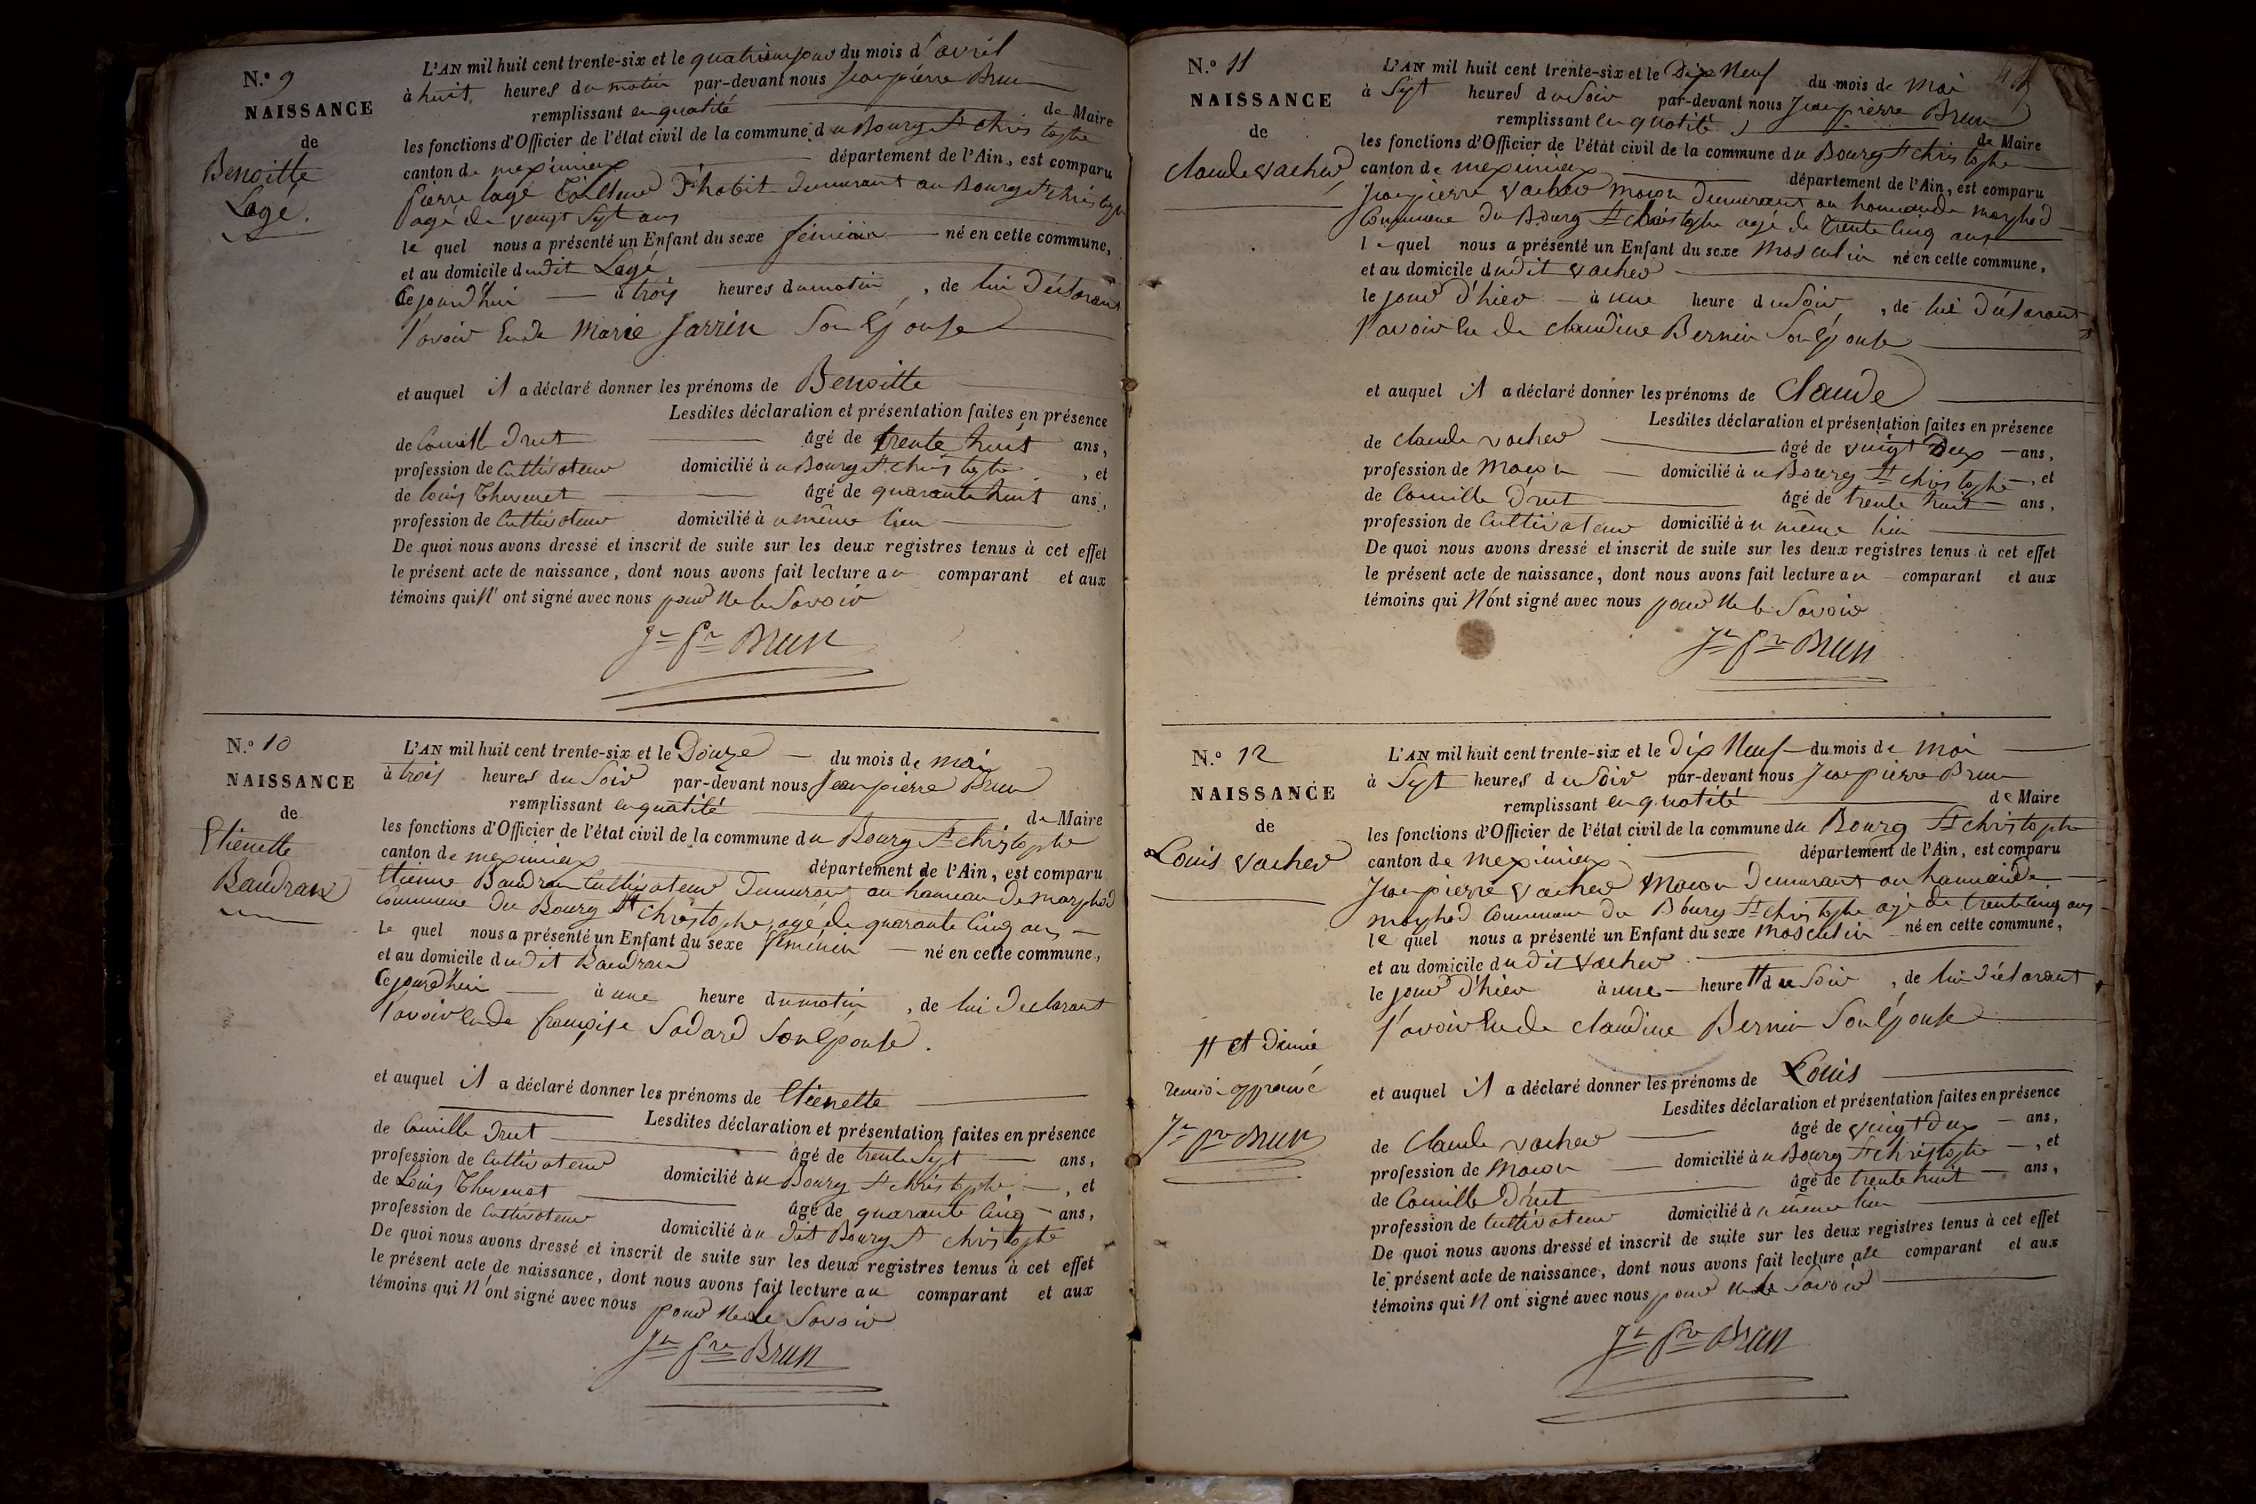 N.° 9
NAISSANCE
de
Benoitte
Lagé.
L'AN mil huit cent trente-six et le quatrieme jour du mois d'avril
à huit heures du matin par-devant nous Jean pierre Brun
remplissant en qualité de Maire
les fonctions d'Officier de l'état civil de la commune du Bourg St christophe
canton de meximieux département de l'Ain, est comparu
pierre lagé Tailleur d'habit demeurant au Bourg St christophe
agé de vingt sept ans
le quel nous a présenté un Enfant du sexe féminin né en cette commune,
et au domicile dudit Lagé
Ce jourd'hui à trois heures du matin, de lui déclarant
l'avoir Eu de Marie Jarrin Son Epouse
et auquel il a déclaré donner les prénoms de Benoitte
Lesdites déclaration et présentation faites en présence
de Camille Drut âgé de trente huit ans,
profession de Cultivateur domicilié à u Bourg St christophe, et
de louis Thevenet âgé de quarante huit ans,
profession de Cultivateur domicilié à u même lieu
De quoi nous avons dressé et inscrit de suite sur les deux registres tenus à cet effet
le présent acte de naissance, dont nous avons fait lecture au comparant et aux
témoins qui N'ont signé avec nous pour Ne le Savoir
Jn Pre Brun
N.° 10
NAISSANCE
de
Etienette
Baudran
L'AN mil huit cent trente-six et le Douze du mois de mai
à trois heures du Soir par-devant nous Jean pierre Brun
remplissant en qualité de Maire
les fonctions d'Officier de l'état civil de la commune du Bourg St christophe
canton de meximieux département de l'Ain, est comparu
Etienne Baudran Cultivateur Demeurant au hameau De marphod
Commune du Bourg St Christophe, agé de quarante Cinq ans
le quel nous a présenté un Enfant du sexe féminin né en cette commune,
et au domicile dudit Baudran
Ce jourd'hui à une heure du matin, de lui Déclarant
l'avoir Eu de françoise Sadard Son Epouse.
et auquel il a déclaré donner les prénoms de Etienette
Lesdites déclaration et présentation faites en présence
de Camille Drut âgé de trente Sept ans,
profession de Cultivateur domicilié à u Bourg St christophe, et
de Louis Thevenet âgé de quarante Cinq ans,
profession de Cultivateur domicilié à u dit Bourg St christophe
De quoi nous avons dressé et inscrit de suite sur les deux registres tenus à cet effet
le présent acte de naissance, dont nous avons fait lecture au comparant et aux
témoins qui N'ont signé avec nous pour Ne le Savoir
Jn Pre Brun
N.° 11
NAISSANCE
de
claude vacher
L'AN mil huit cent trente-six et le Dix Neuf du mois de Mai
à Sept heures du Soir par-devant nous Jean pierre Brun
remplissant en qualité de Maire
les fonctions d'Officier de l'état civil de la commune du Bourg St christophe
canton de meximieux département de l'Ain, est comparu
Jean pierre vacher maçon Demeurant au hameau de marphod
Commune du Bourg St christophe agé de trente cinq ans
le quel nous a présenté un Enfant du sexe Masculin né en cette commune,
et au domicile dudit vacher
le jour d'hier à une heure du Soir, de lui déclarant
l'avoir Eu de claudine Bernin Son Epouse
et auquel il a déclaré donner les prénoms de Claude
Lesdites déclaration et présentation faites en présence
de claude vacher âgé de vingt Deux ans,
profession de Maçon domicilié à u Bourg St christophe, et
de Camille Drut âgé de trente huit ans,
profession de Cultivateur domicilié à u même lieu
De quoi nous avons dressé et inscrit de suite sur les deux registres tenus à cet effet
le présent acte de naissance, dont nous avons fait lecture au comparant et aux
témoins qui N'ont signé avec nous pour Ne le Savoir
Jn Pre Brun
N.° 12
NAISSANCE
de
Louis vacher
L'AN mil huit cent trente-six et le Dix Neuf du mois de mai
à Sept heures du Soir par-devant nous Jean pierre Brun
remplissant en qualité de Maire
les fonctions d'Officier de l'état civil de la commune du Bourg St christophe
canton de meximieux département de l'Ain, est comparu
Jean pierre vacher Maçon Demeurant au hameau de
marphod Commune du Bourg St christophe agé de trente cinq ans
le quel nous a présenté un Enfant du sexe Masculin né en cette commune,
et au domicile dudit vacher
le jour d'hier à une heure # du Soir, de lui déclarant
l'avoir Eu de claudine Bernin Son Epouse
# et Dimie
renvoi approuvé
Jn Pre Brun
et auquel il a déclaré donner les prénoms de Louis
Lesdites déclaration et présentation faites en présence
de Claude vacher âgé de vingt deux ans,
profession de Maçon domicilié à u Bourg St christophe, et
de Camille Drut âgé de trente huit ans,
profession de Cultivateur domicilié à u même lieu
De quoi nous avons dressé et inscrit de suite sur les deux registres tenus à cet effet
le présent acte de naissance, dont nous avons fait lecture au comparant et aux
témoins qui N'ont signé avec nous pour Ne le Savoir
Jn Pre Brun